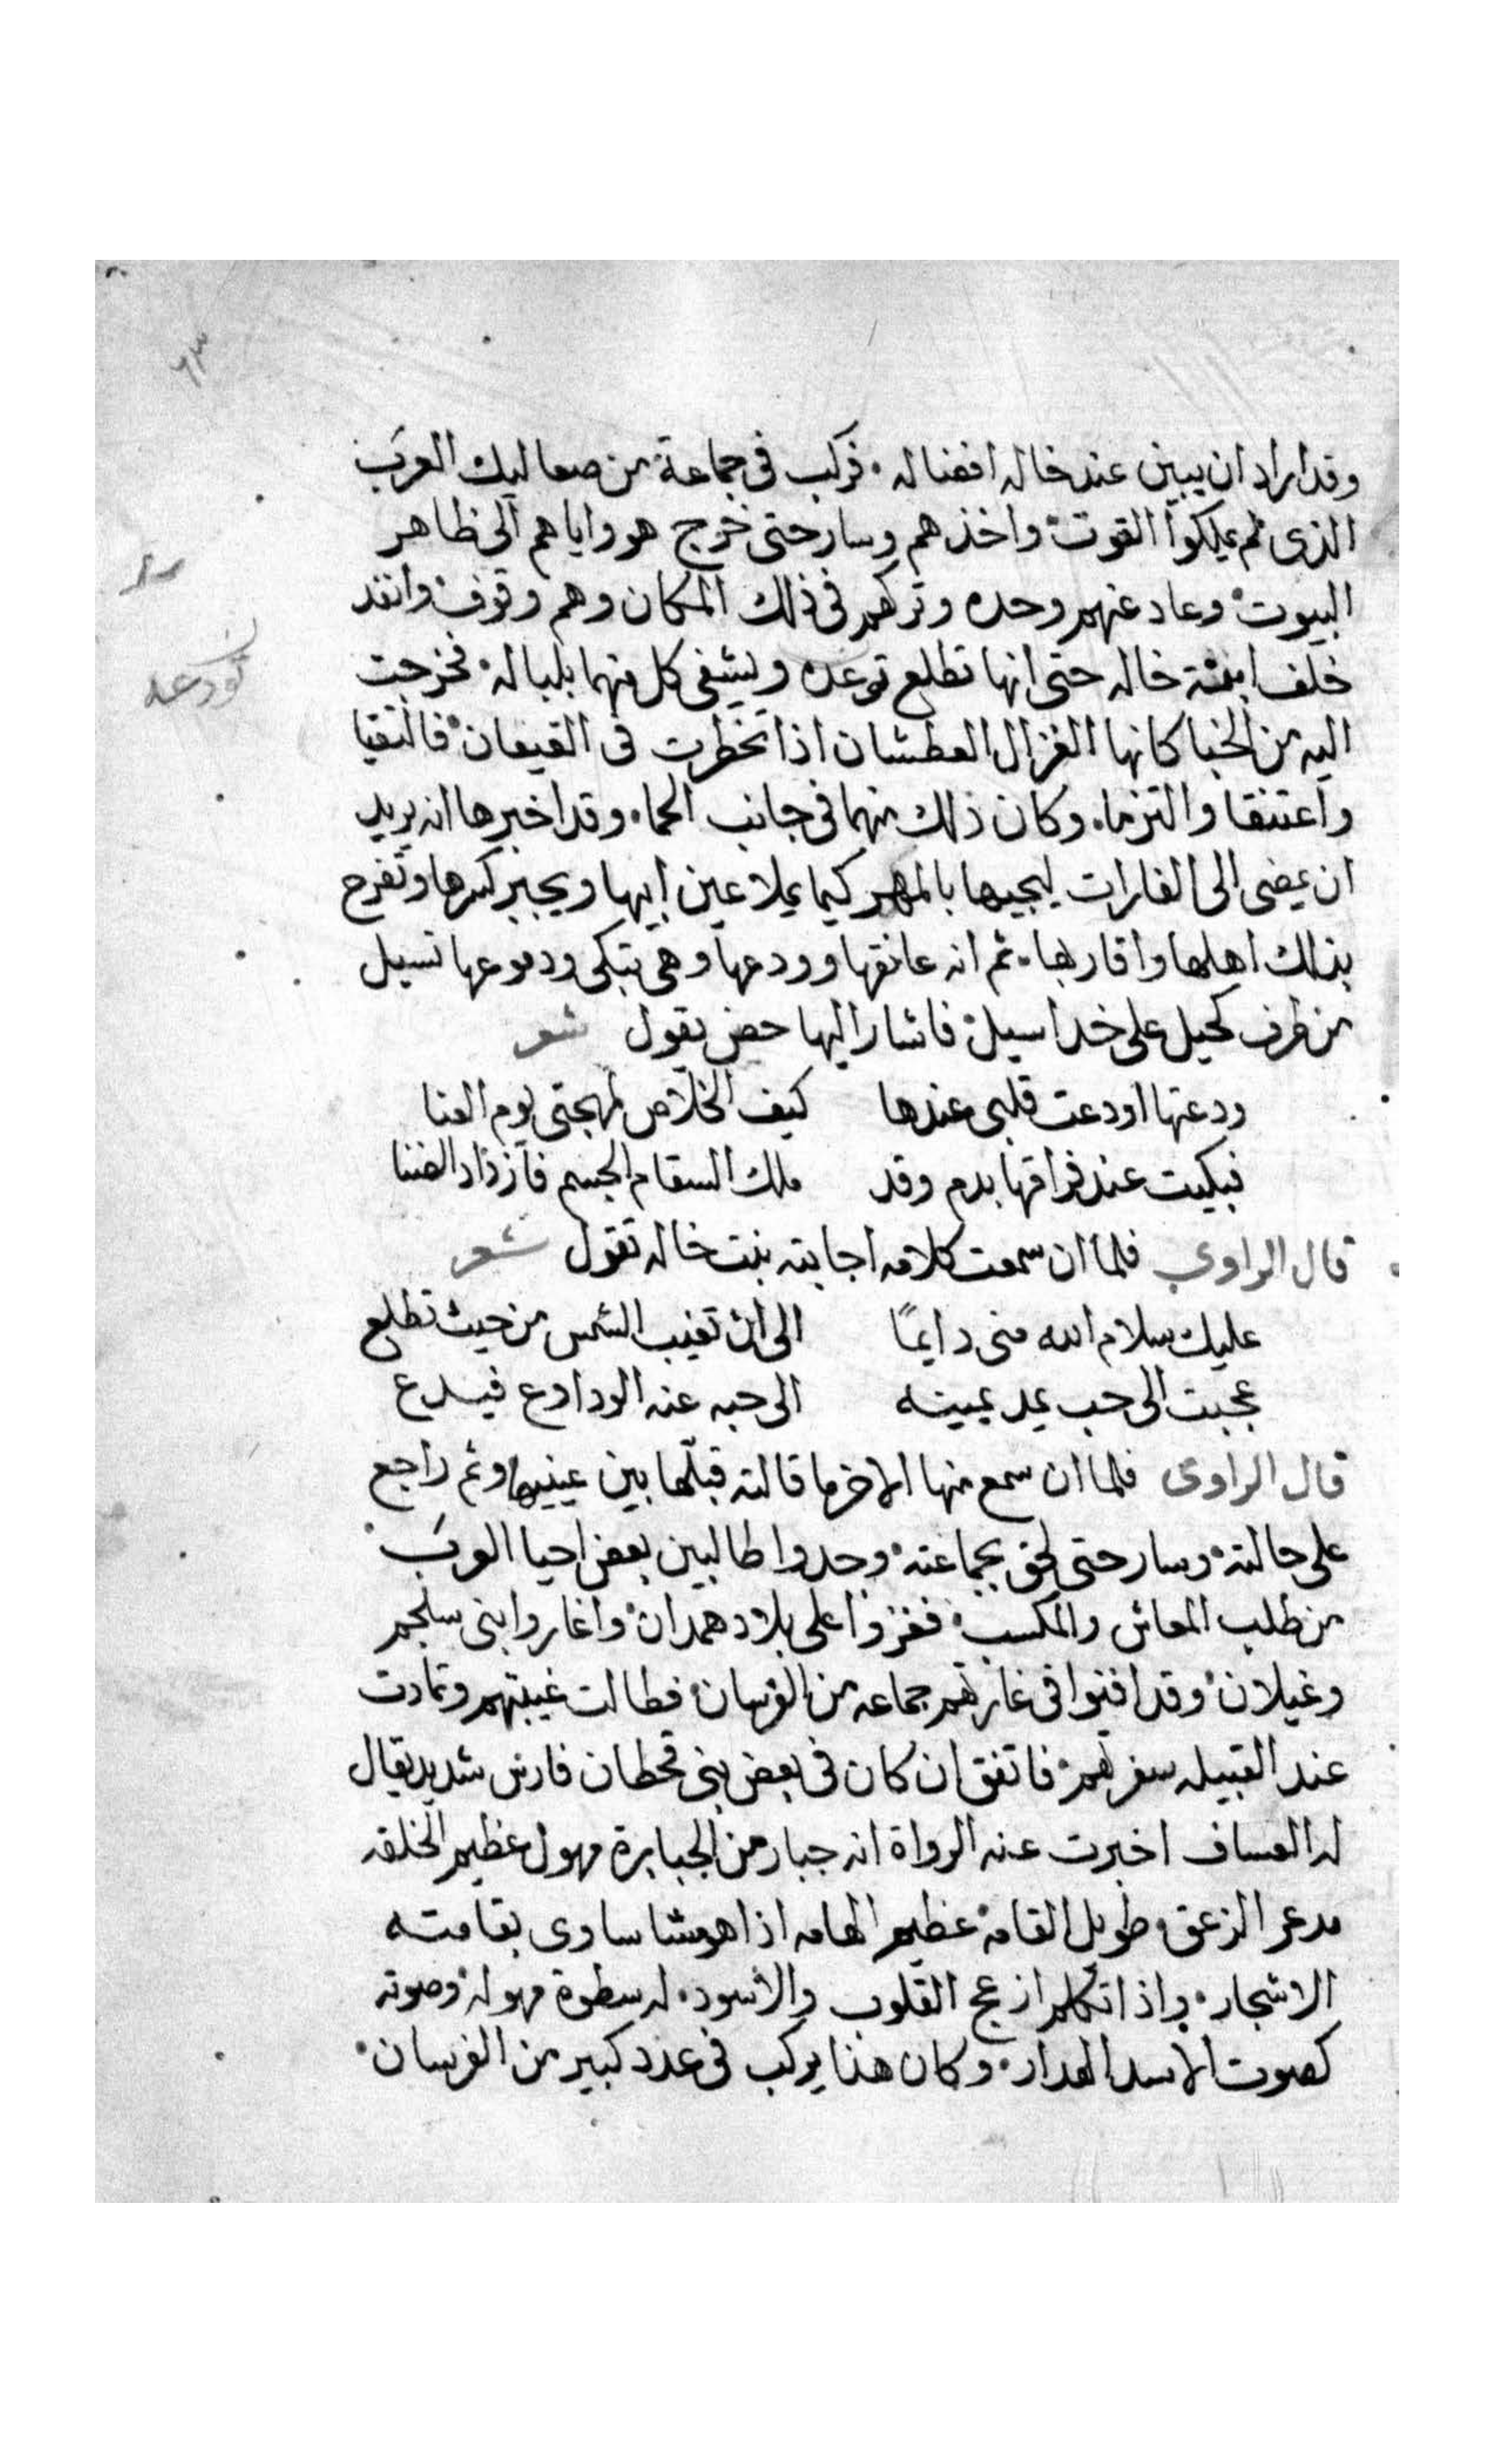 ٦٣
وقد اراد ان يبين عند خاله افضاله . فركب في جماعة من صعاليك العرب
الذى لم يملكوا القوت واخذهم وسار حتى خرج هو واياهم الى ظاهر
البيوت وعاد عنهم وحده وتركهم فى ذلك المكان وهم وقوف وانفد
خلف ابنة خاله حتى انها تطلع توعده ويشفى كل منهما بلباله فخرجت
تودعه
اليه من الخبا كانها الغزال العطشان اذا تخطرت فى القيعان فالتقيا
واعتنقا والتزما . وكان ذلك منهما فى جانب الحما . وقد اخبرها انه يريد
ان يمضى الى الغارات ليجيها بالمهر كيما يملا عين ابيها ويجبر كسرها وتفرح
بذلك اهلها واقاربها . ثم انه عانقها وودعها وهى تبكى ودموعها تسيل
من طرف كحيل على خد اسيل فاشار اليها حصن يقول شعر
ودعتها اودعت قلبى عندها كيف الخلاص لمهجتى يوم العنا
فبكيت عند فراقها بدم وقد ملك السقام الجسم فازداد الضنا
قال الراوى فلما ان سمعت كلامه اجابته بنت خاله تقول شعر
عليك سلام الله منى دايمًا الى ان تغيب الشمس من حيث تطلع
عجبت الى حب يمد يمينه الى حبه عند الوداع فيسرع
قال الراوى فلما ان سمع منها الاخر ما قالته قبلها بين عينيها وثم راجع
على حالته وسار حتى لحق بجماعته وجدوا طالبين بعض احيا العرب
من طلب المعاش والمكسب فغزوا على بلاد همدان واغاروا بنى سلجم
وغيلان وقد افنوا فى غارتهم جماعه من الفرسان فطالت غيبتهم وتمادت
عند القبيله سفرتهم فاتفق ان كان فى بعض بنى قحطان فارس شديد يقال
له العساف اخبرت عنه الرواة انه جبار من الجبابرة مهول عظيم الخلقه
مدعر الزعق طويل القامه عظيم الهامه اذا هو مشا ساوى بقامته
الاشجار . واذا تكلم ازعج القلوب والاسود . له سطوة مهوله وصوته
كصوت الاسد الهدار . وكان هذا يركب فى عدد كبير من الفرسان .